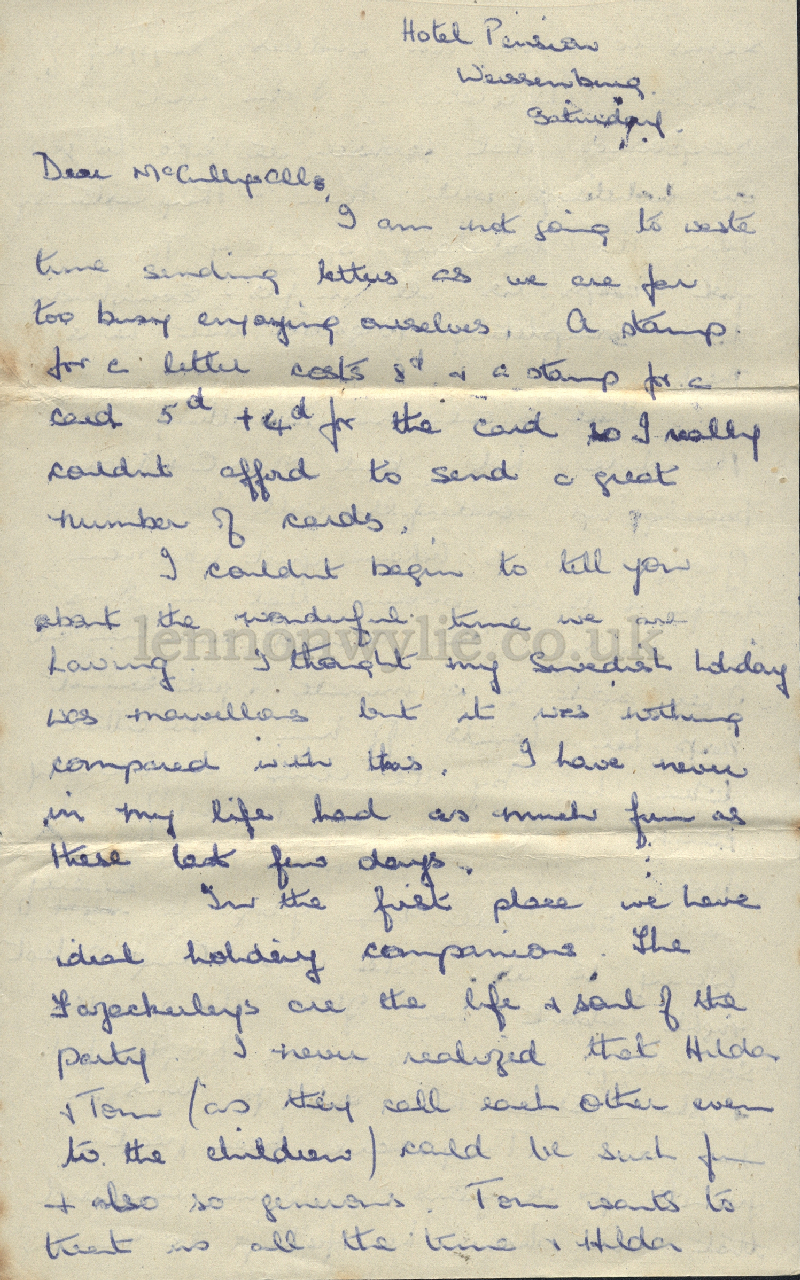 Hotel Pension
Weissenburg.
Saturday.
Dear
I am not going to waste
time sending letters as we are far
too busy enjoying ourselves. A stamp
for a letter costs 8d + a stamp for a
card 5d + 4d for the card so I really
couldn't afford to send a great
number of cards.
I couldn't begin to tell you
about the wonderful time we are
having I thought my Swedish holiday
was marvellous but it was nothing
compared with this. I have never
in my life had as much fun as
these last few days.
In the first place we have
ideal holiday companions. The
Fazackerleys are the life + soul of the
party. I never realized that Hilda
+ Tom (as they call each other even
to the children) could be such fun
+ also so generous. Tom wants to
treat us all the time + Hilda
lennonwylie.co.uk